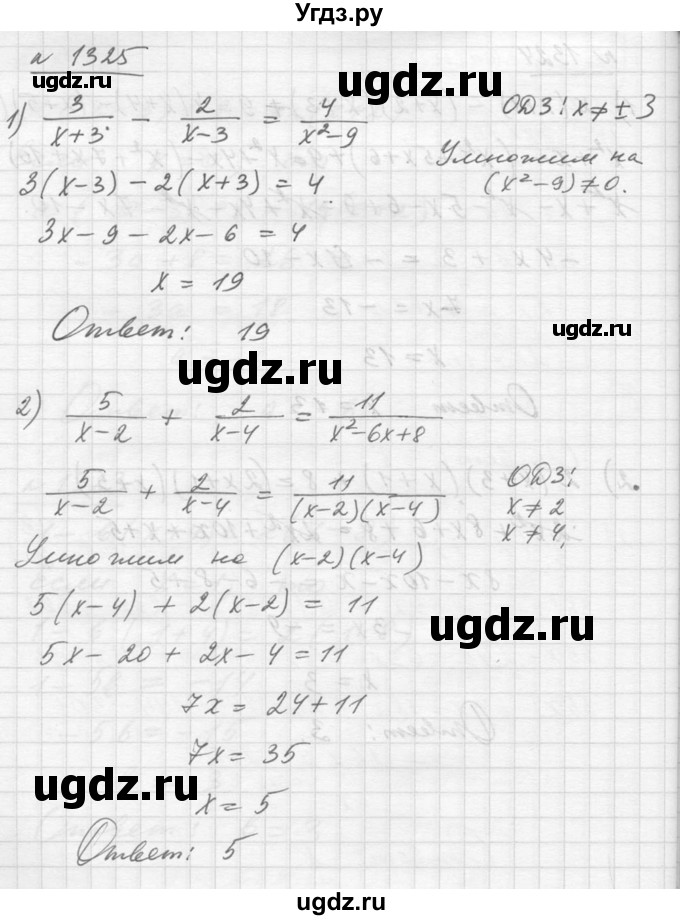 Угдз.ру
№ 1325
1) 3/(x+3) − 2/(x−3) = 4/(x²−9) ОДЗ: x ≠ ± 3
3(x−3) − 2(x+3) = 4 Умножим на (x²−9) ≠ 0.
3x − 9 − 2x − 6 = 4
x = 19
Ответ: 19
2) 5/(x−2) + 2/(x−4) = 11/(x²−6x+8)
5/(x−2) + 2/(x−4) = 11/((x−2)(x−4)) ОДЗ: x ≠ 2 x ≠ 4.
Умножим на (x−2)(x−4)
5(x−4) + 2(x−2) = 11
5x − 20 + 2x − 4 = 11
7x = 24 + 11
7x = 35
x = 5
Ответ: 5
ugdz.ru
ugdz.ru
ugdz.ru
ugdz.ru
ugdz.ru
ugdz.ru
ugdz.ru
ugdz.ru